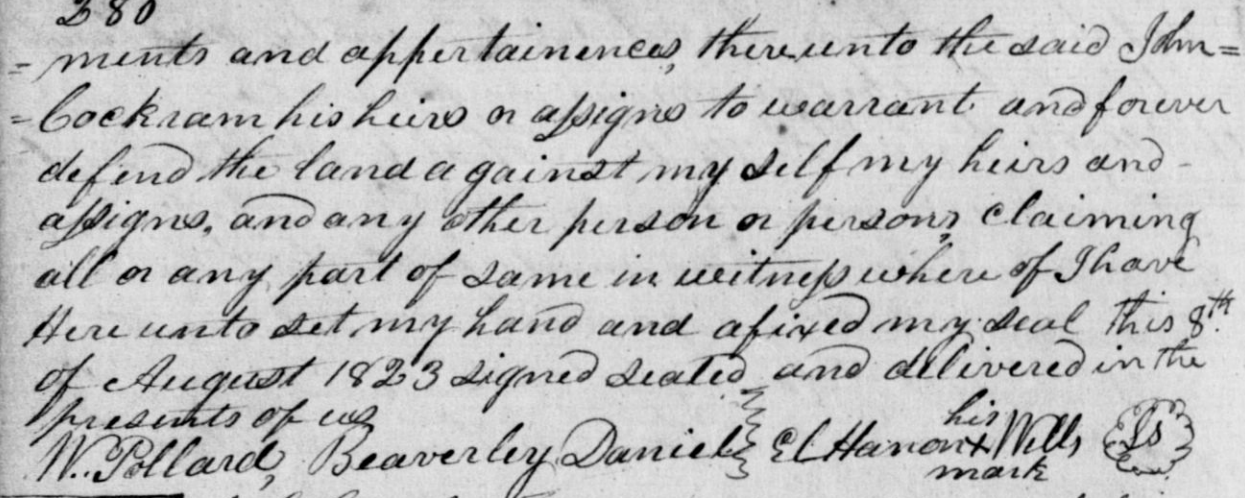 280
= ments and appertainences, there unto the said John =
= Cockram his heirs or assigns to warrant and forever
defend the land against my self my heirs and -
assigns, and any other person or persons, claiming
all or any part of same in witness where of I have
Here unto set my hand and afixed my seal this 8th
of August 1823 signed sealed and delivered in the
presents of us
W. Pollard, Beaverley Daniel El Hanon his x mark Wells Ls